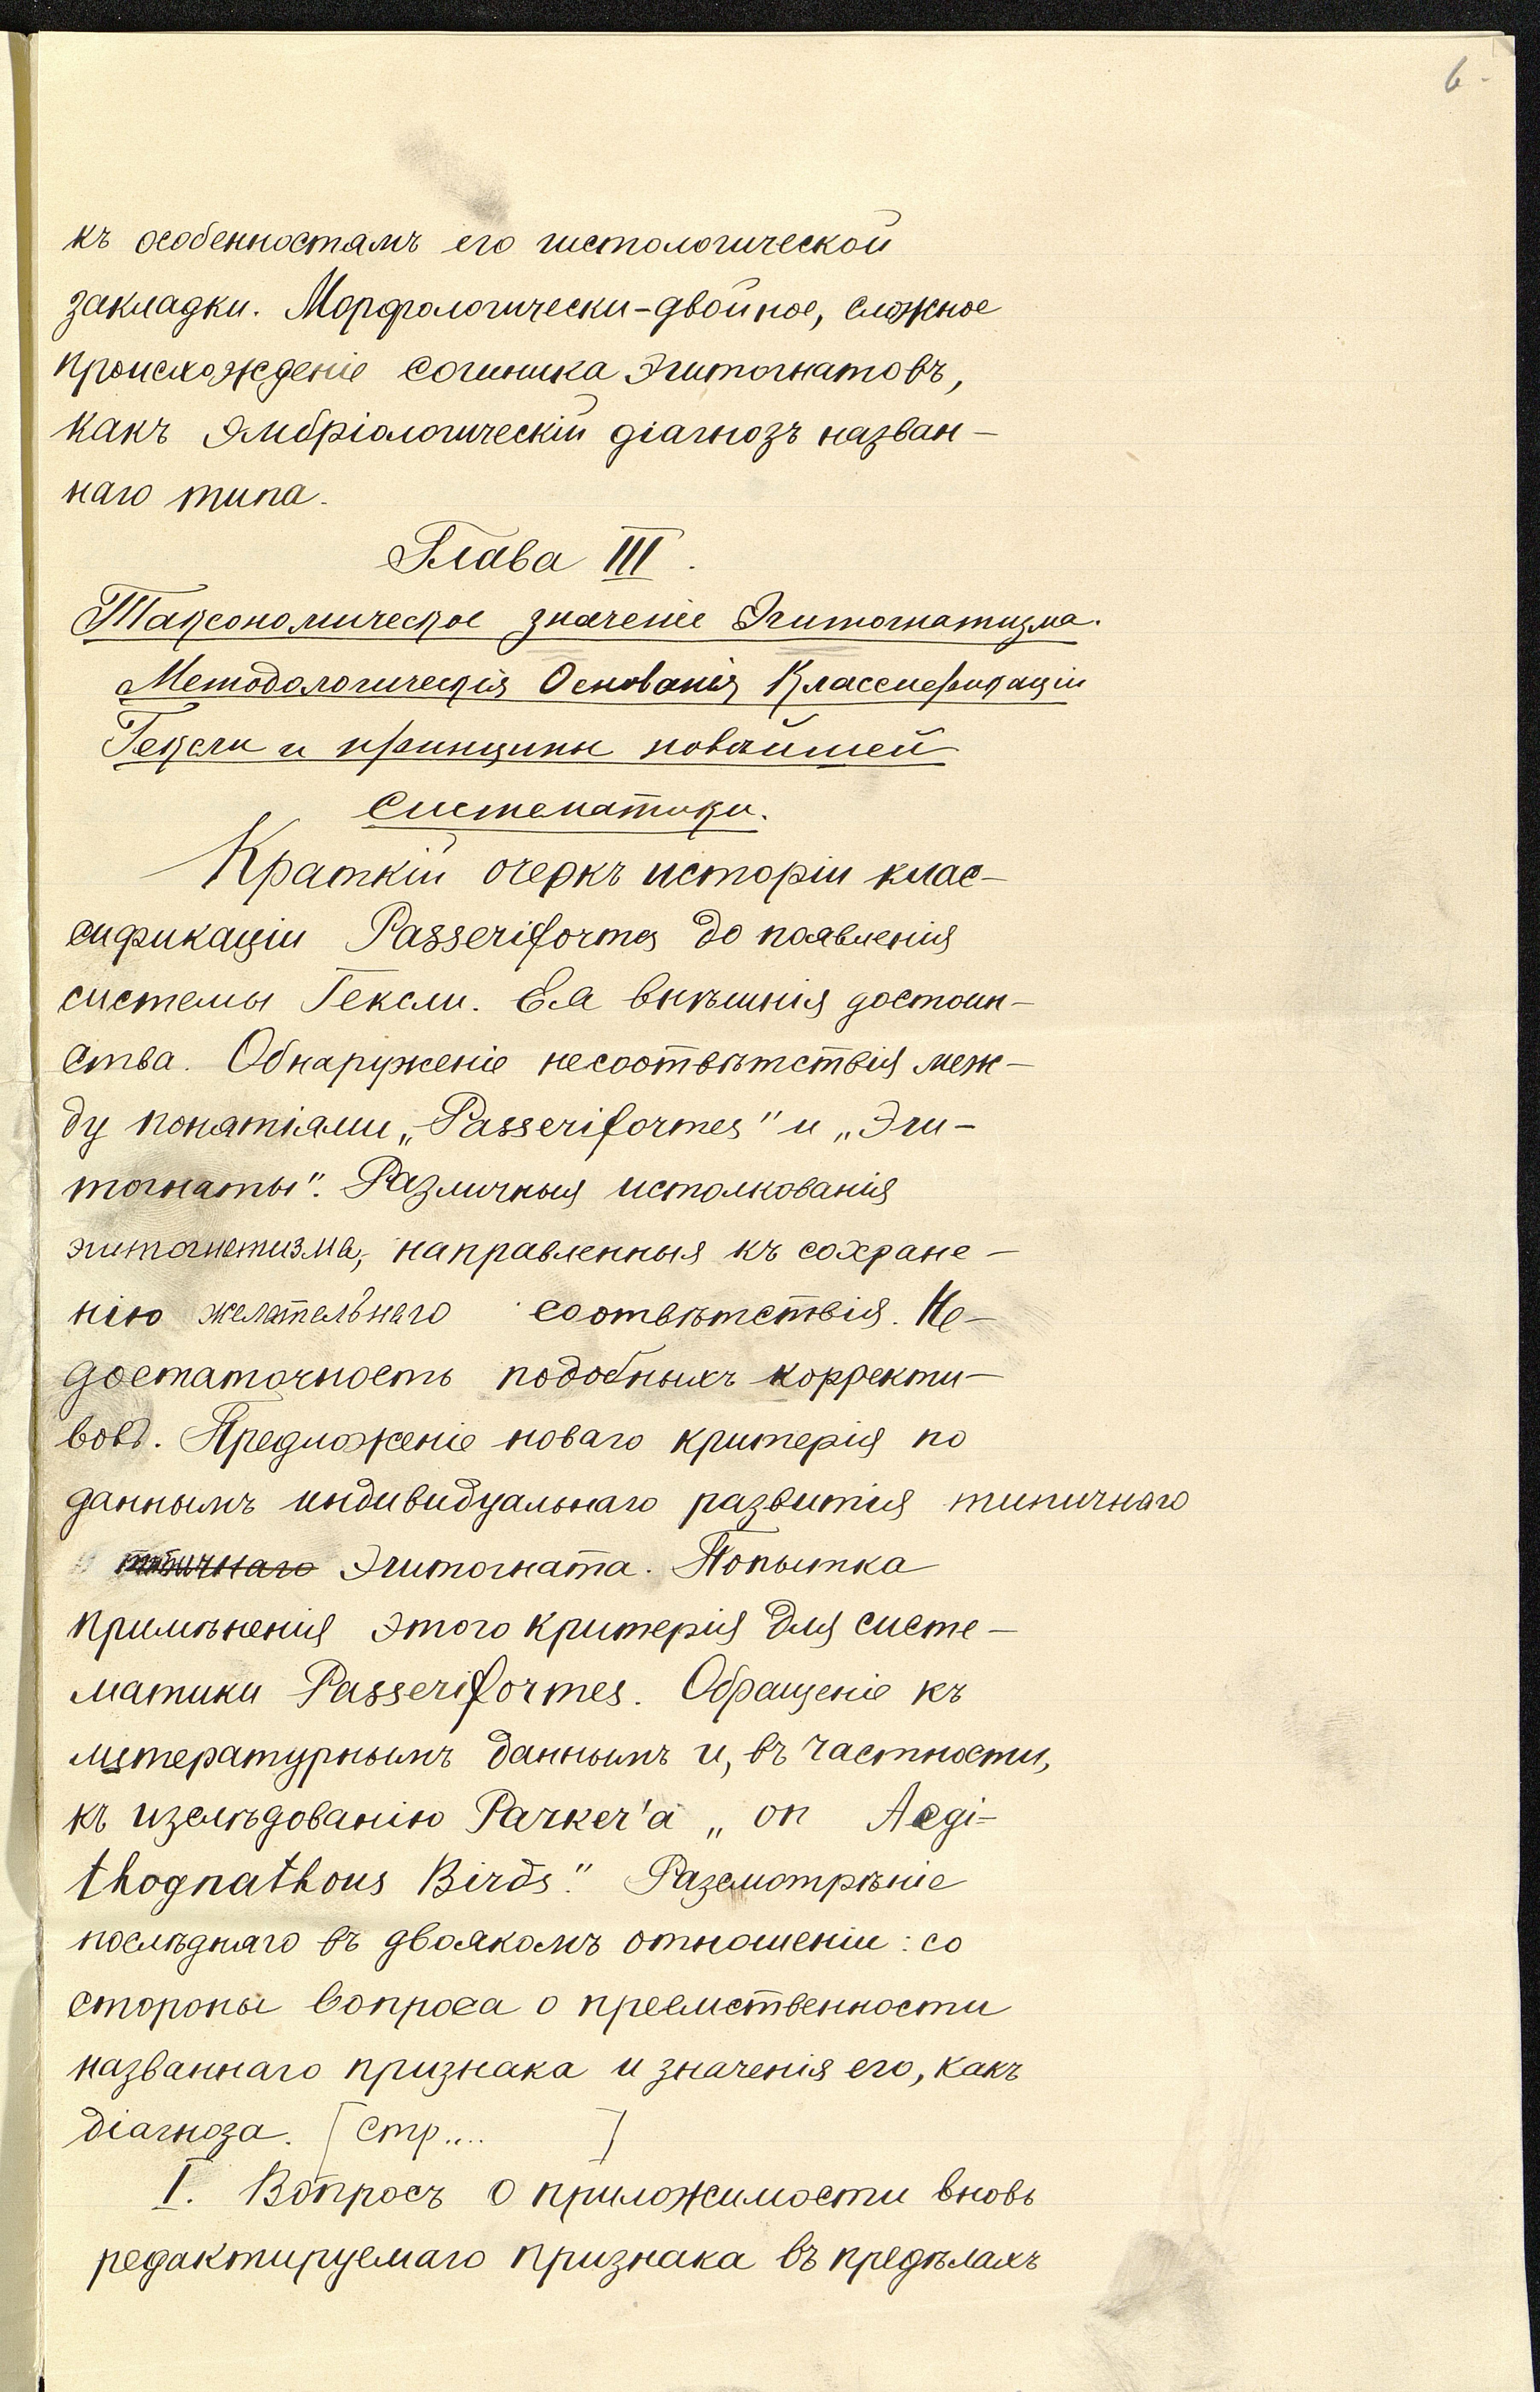 6
къ особенностямъ его гистологической
закладки. Морфологически-двойное, сложное
происхожденіе сошника Эгитогнатовъ,
какъ эмбріологическій діагнозъ назван-
наго типа.
Глава III.
Таксономическое значеніе Эгитогнатизма.
Методологическія Основанія Классификаціи
Гексли и принципы новѣйшей
систематики.
Краткій очеркъ исторіи клас-
сификаціи Passeriformes до появленія
системы Гексли. Ея внѣшнія достоин-
ства. Обнаруженіе несоотвѣтствія меж-
ду понятіями „Passeriformes" и „Эги-
тогнаты". Различныя истолкованія
эгитогнатизма, направленныя къ сохране-
нію желательнаго соотвѣтствія. Не-
достаточность подобныхъ корректи-
вовъ. Предложеніе новаго критерія по
даннымъ индивидуальнаго развитія типичнаго
типичнаго Эгитогната. Попытка
примѣненія этого критерія для систе-
матики Passeriformes. Обращеніе къ
литературнымъ даннымъ и, въ частности,
къ изслѣдованію Parker'a „on Aegi-
thognathous Birds." Разсмотрѣніе
послѣдняго въ двоякомъ отношеніи: со
стороны вопроса о преемственности
названнаго признака и значенія его, какъ
діагноза. [Стр.... ]
I. Вопросъ о приложимости вновь
редактируемаго признака въ предѣлахъ